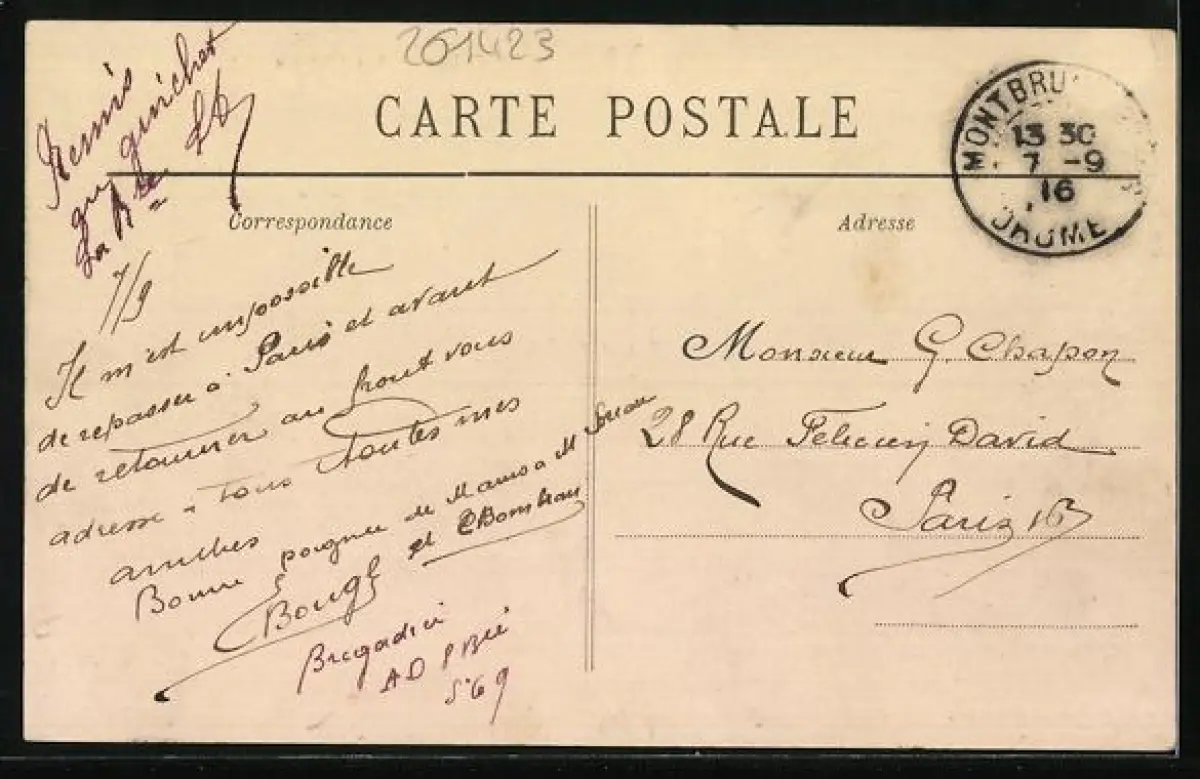 261423
Remis
au guichet
La Rce
CARTE POSTALE
MONTBRU
13 30
7 -9
16
DROME
Correspondance
Adresse
7/9
Il m'est impossible
de repasser à Paris et avant
de retourner au front vous
adresse à tous toutes mes
amities
Bonne poignée de Mains à M
et
Bougé
Brigadier
AD
569
Monsieur G. Chapon
28 Rue Felicien David
Paris 16